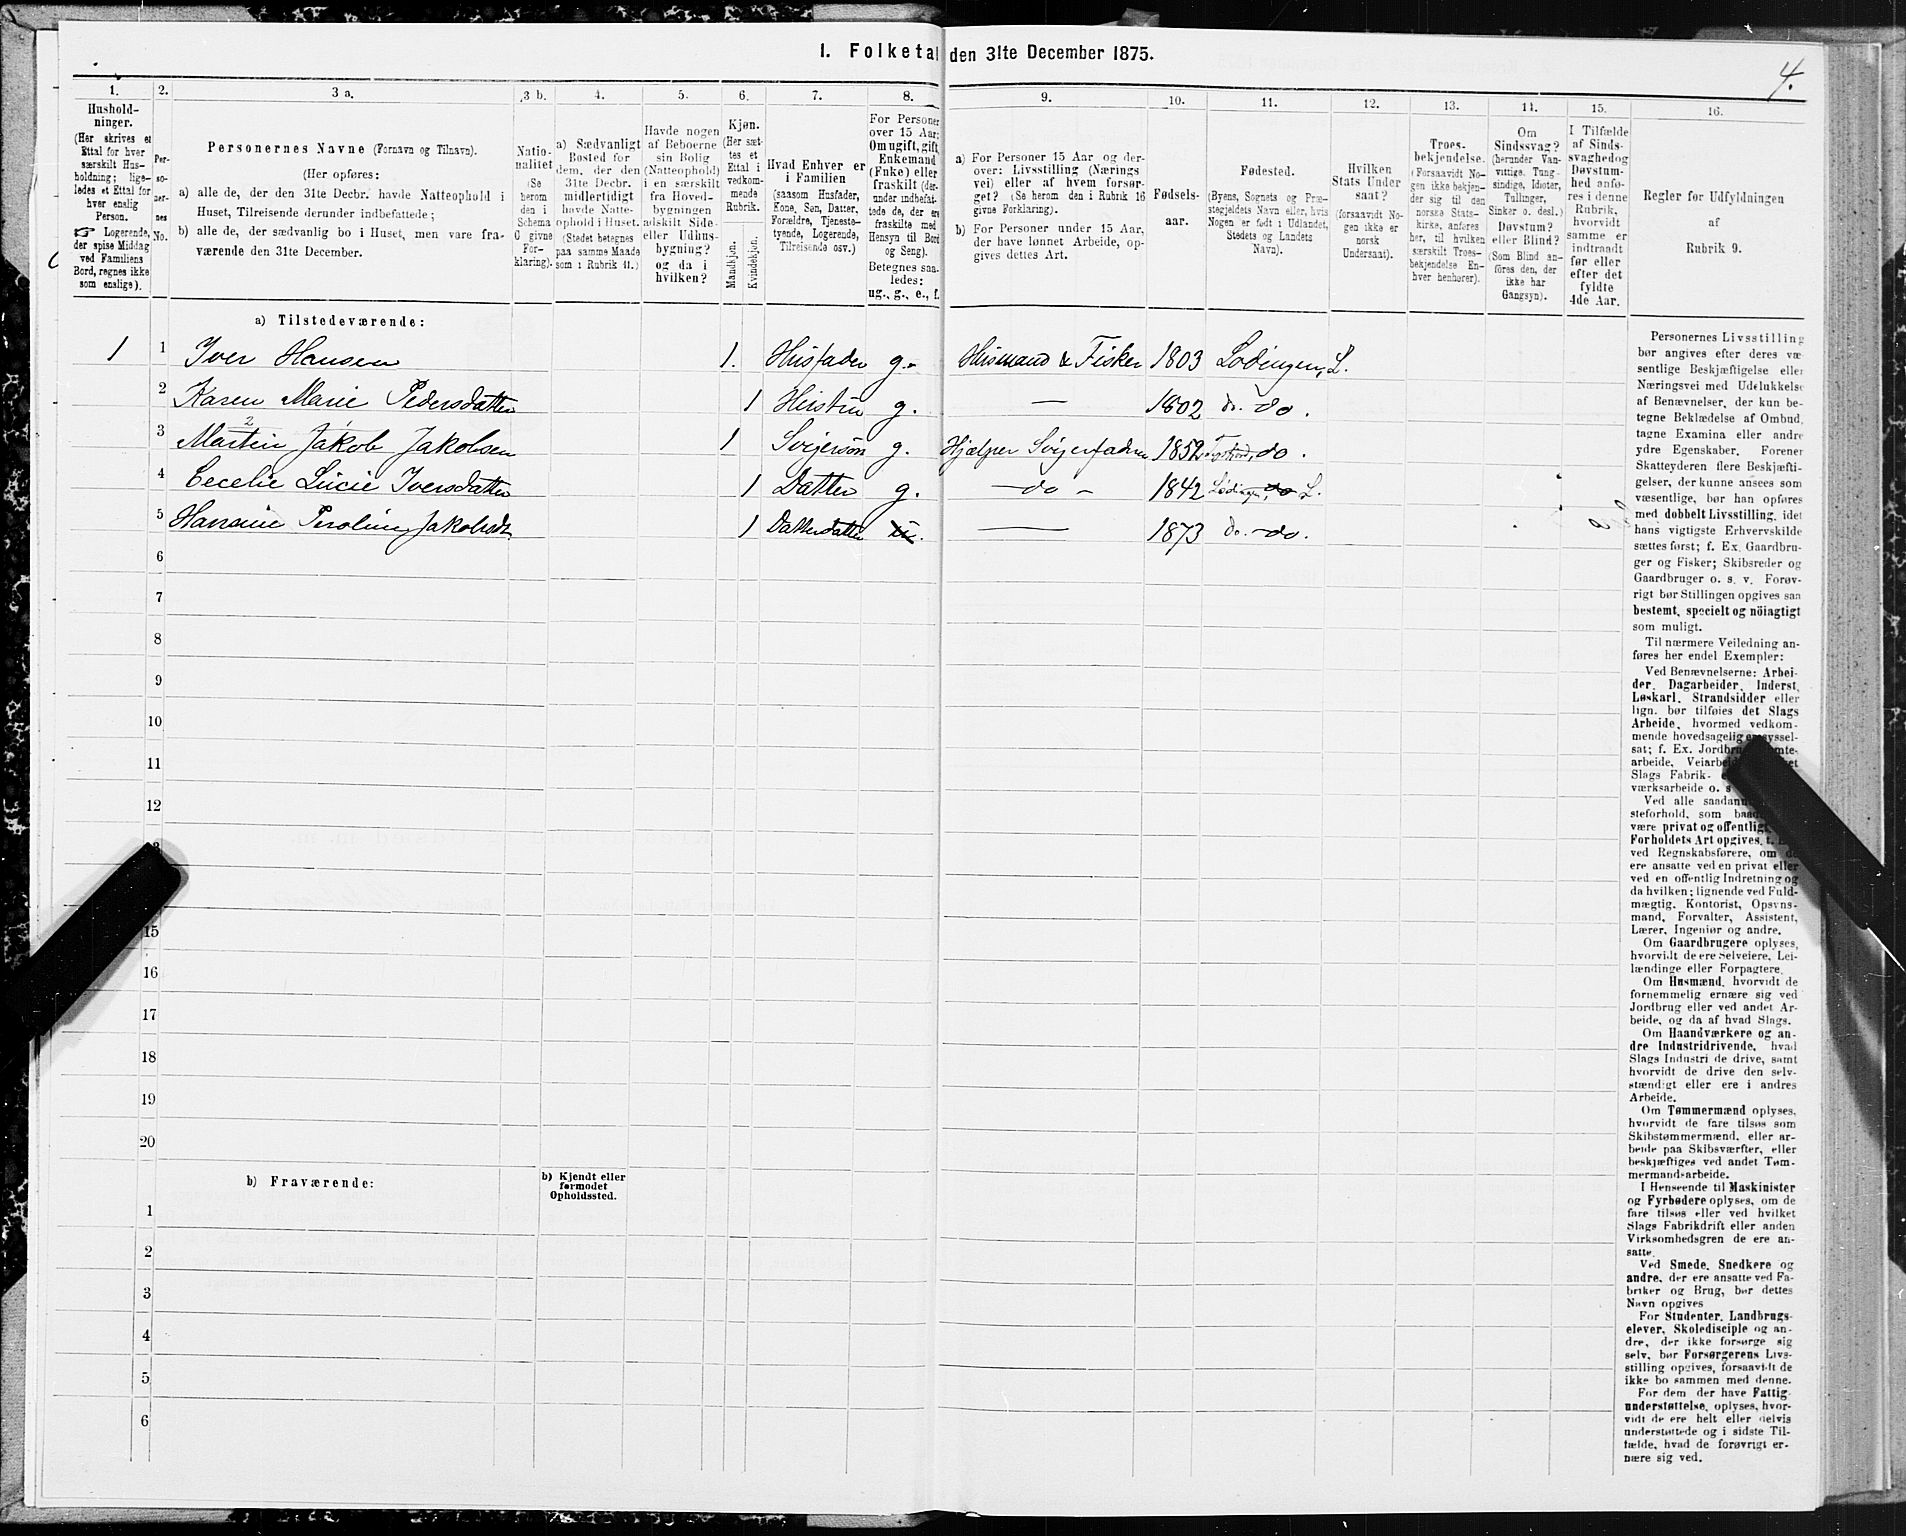 1. Folketal den 31te December 1875.
4.
1. 2. 3 a. 3 b. 4. 5. 6. 7. 8. 9. 10. 11. 12. 13. 14. 15. 16.
Hushold-
ninger.
(Her skrives et
Ettal for hver
særskilt Hus-
holdning; lige-
ledes et Ettal for
hver enslig
Person.
☞ Logerende,
der spise Middag
ved Familiens
Bord, regnes ikke
som enslige).
Per-
so-
ner-
nes
No.
Personernes Navne (Fornavn og Tilnavn).
(Her opføres:
a) alle de, der den 31te Decbr. havde Natteophold i
Huset, Tilreisende derunder indbefattede;
b) alle de, der sædvanlig bo i Huset, men vare fra-
værende den 31te December.
Natio-
nalitet
(Se
herom
den i
Schema
C givne
For-
klaring).
a) Sædvanligt
Bosted for
dem, der den
31te Decbr.
midlertidigt
havde Natte-
ophold i Huset.
(Stedet betegnes
paa samme Maade
som i Rubrik 11.)
Havde nogen
af Beboerne
sin Bolig
(Natteophold)
i en særskilt
fra Hoved-
bygningen
adskilt Side-
eller Udhus-
bygning?
og da i
hvilken?
Kjøn.
(Her sæt-
tes et
Ettal i
vedkom-
mende
Rubrik.
Mandkjøn.
Kvindekjøn.
Hvad Enhver er
i Familien
(saasom Husfader,
Kone, Søn, Datter,
Forældre, Tjeneste-
tyende, Logerende,
Tilreisende osv.)
For Personer
over 15 Aar:
Om ugift, gift,
Enkemand
(Enke) eller
fraskilt (der-
under indbefat-
tede de, der ere
fraskilte med
Hensyn til Bord
og Seng).
Betegnes saa-
ledes:
ug., g., e., f.
a) For Personer 15 Aar og der-
over: Livsstilling (Nærings
vei) eller af hvem forsør-
get? (Se herom den i Rubrik 16
givne Forklaring).
b) For Personer under 15 Aar,
der have lønnet Arbeide, op-
gives dettes Art.
Fødsels-
aar.
Fødested.
(Byens, Sognets og Præ-
stegjeldets Navn eller, hvis
Nogen er født i Udlandet,
Stedets og Landets
Navn).
Hvilken
Stats Under
saat?
(forsaavidt No-
gen ikke er
norsk
Undersaat).
Troes-
bekjendelse.
(Forsaavidt No-
gen ikke bekjen-
der sig til den
norske Stats-
kirke, anføres
her, til hvilken
særskilt Troes-
bekjendelse En-
hver henhører).
Om
Sindssvag?
(herunder Van-
vittige, Tung-
sindige, Idioter,
Tullinger,
Sinker o. desl.)
Døvstum?
eller Blind?
(Som Blind an-
føres den, der
ikke har
Gangsyn).
I Tilfælde
af Sinds-
svaghedog
Døvstum-
hed anfø-
res i denne
Rubrik,
hvorvidt
samme er
indtraadt
før eller
efter det
fyldte
4de Aar.
Regler for Udfyldningen
af
Rubrik 9.
a) Tilstedeværende:
1 1 Iver Hansen 1. Husfader g. Husmand & Fisker 1803 Lødingen, L.
2 Karen Marie Pedersdatter 1 Hustru g. — 1802 do. do.
2
3 Martin Jakob Jakobsen 1 Svigersøn g. Hjælper Svigerfaderen 1852 do.
4 Cecelie Lucie Iversdatter 1 Datter g. — do — 1842 Lødingen, do L.
5 Hansine Jakobsdt. 1 Datterdatter — 1873 do. — do.
6
7
8
9
10
11
12
13
15
16
17
18
19
20
b) Fraværende:
b) Kjendt eller
formodet
Opholdssted.
1
2
3
4
5
6
Personernes Livsstilling
bør angives efter deres væ-
sentlige Beskjæftigelse eller
Næringsvei med Udelukkelse
af Benævnelser, der kun be-
tegne Beklædelse af Ombud,
tagne Examina eller andre
ydre Egenskaber. Forener
Skatteyderen flere Beskjæfti-
gelser, der kunne ansees som
væsentlige, bør han opføres
med dobbelt Livsstilling, idet
hans vigtigste Erhvervskilde
sættes først; f. Ex. Gaardbru-
ger og Fisker; Skibsreder og
Gaardbruger o. s. v. Forøv-
rigt bør Stillingen opgives saa
bestemt, specielt og nöiagtigt
som muligt.
Til nærmere Veiledning an-
føres her endel Exempler:
Ved Benævnelserne: Arbei-
der, Dagarbeider, Inderst,
Løskarl, Strandsidder eller
lign. bør tilføies det Slags
Arbeide, hvormed vedkom-
mende hovedsagelig er syssel-
sat; f. Ex. Jordbru
arbeide, Veiarbei
Slags Fabrik-
værksarbeide o. s
Ved alle saadan
steforhold, som baa
være privat og offentligt,
Forholdets Art opgives, t. Ex.
ved Regnskabsførere, om de
ere ansatte ved en privat eller
ved en offentlig Indretning og
da hvilken; lignende ved Fuld-
mægtig, Kontorist, Opsyns-
mand, Forvalter, Assistent,
Lærer, Ingeniør og andre.
Om Gaardbrugere oplyses,
hvorvidt de ere Selveiere, Lei-
lændinge eller Forpagtere.
Om Husmænd, hvorvidt de
fornemmelig ernære sig ved
Jordbrug eller ved andet Ar-
beide, og da af hvad Slags.
Om Haandværkere og an-
dre Industridrivende, hvad
Slags Industri de drive, samt
hvorvidt de drive den selv-
stændigt eller ere i andres
Arbeide.
Om Tømmermænd oplyses,
hvorvidt de fare tilsøs som
Skibstømmermænd, eller ar-
beide paa Skibsværfter, eller
beskjæftiges ved andet Tøm-
mermandsarbeide.
I Henseende til Maskinister
og Fyrbødere oplyses, om de
fare tilsøs eller ved hvilket
Slags Fabrikdrift eller anden
Virksomhedsgren de ere an-
satte.
Ved Smede, Snedkere og
andre, der ere ansatte ved Fa-
briker og Brug, bør dettes
Navn opgives
For Studenter, Landbrugs-
elever, Skoledisciple og an-
dre, der ikke forsørge sig
selv, bør Forsørgerens Livs-
stilling opgives, forsaavidt de
ikke bo sammen med denne.
For dem der have Fattig-
understøttelse, oplyses, hvor-
vidt de ere helt eller delvis
understøttede og i sidste Til-
fælde, hvad de forøvrigt er-
nære sig ved.